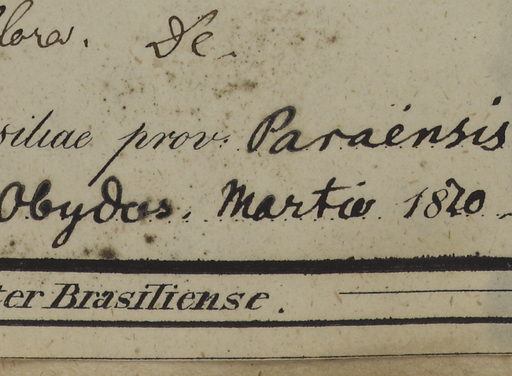 lora. De
siliae prov. Paraënsis
Obydos. Martio 1820
ter Brasiliense.